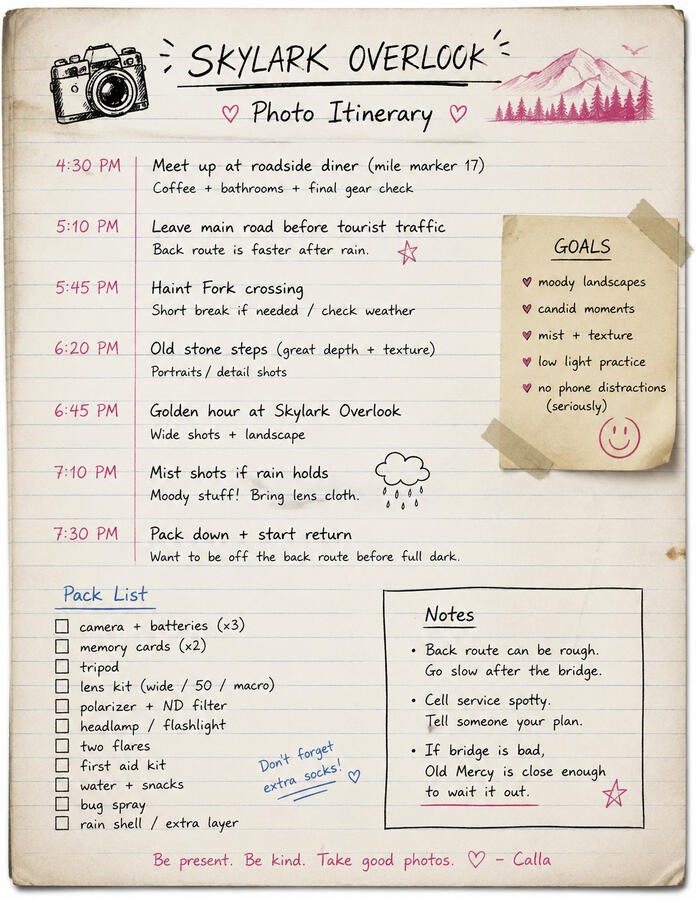 SKYLARK OVERLOOK
Photo Itinerary
4:30 PM Meet up at roadside diner (mile marker 17)
Coffee + bathrooms + final gear check
5:10 PM Leave main road before tourist traffic
Back route is faster after rain.
5:45 PM Haint Fork crossing
Short break if needed / check weather
6:20 PM Old stone steps (great depth + texture)
Portraits / detail shots
6:45 PM Golden hour at Skylark Overlook
Wide shots + landscape
7:10 PM Mist shots if rain holds
Moody stuff! Bring lens cloth.
7:30 PM Pack down + start return
Want to be off the back route before full dark.
GOALS
moody landscapes
candid moments
mist + texture
low light practice
no phone distractions
(seriously)
Pack List
camera + batteries (x3)
memory cards (x2)
tripod
lens kit (wide / 50 / macro)
polarizer + ND filter
headlamp / flashlight
two flares
first aid kit
water + snacks
bug spray
rain shell / extra layer
Don't forget
extra socks!
Notes
• Back route can be rough.
Go slow after the bridge.
• Cell service spotty.
Tell someone your plan.
• If bridge is bad,
Old Mercy is close enough
to wait it out.
Be present. Be kind. Take good photos. ♡ - Calla